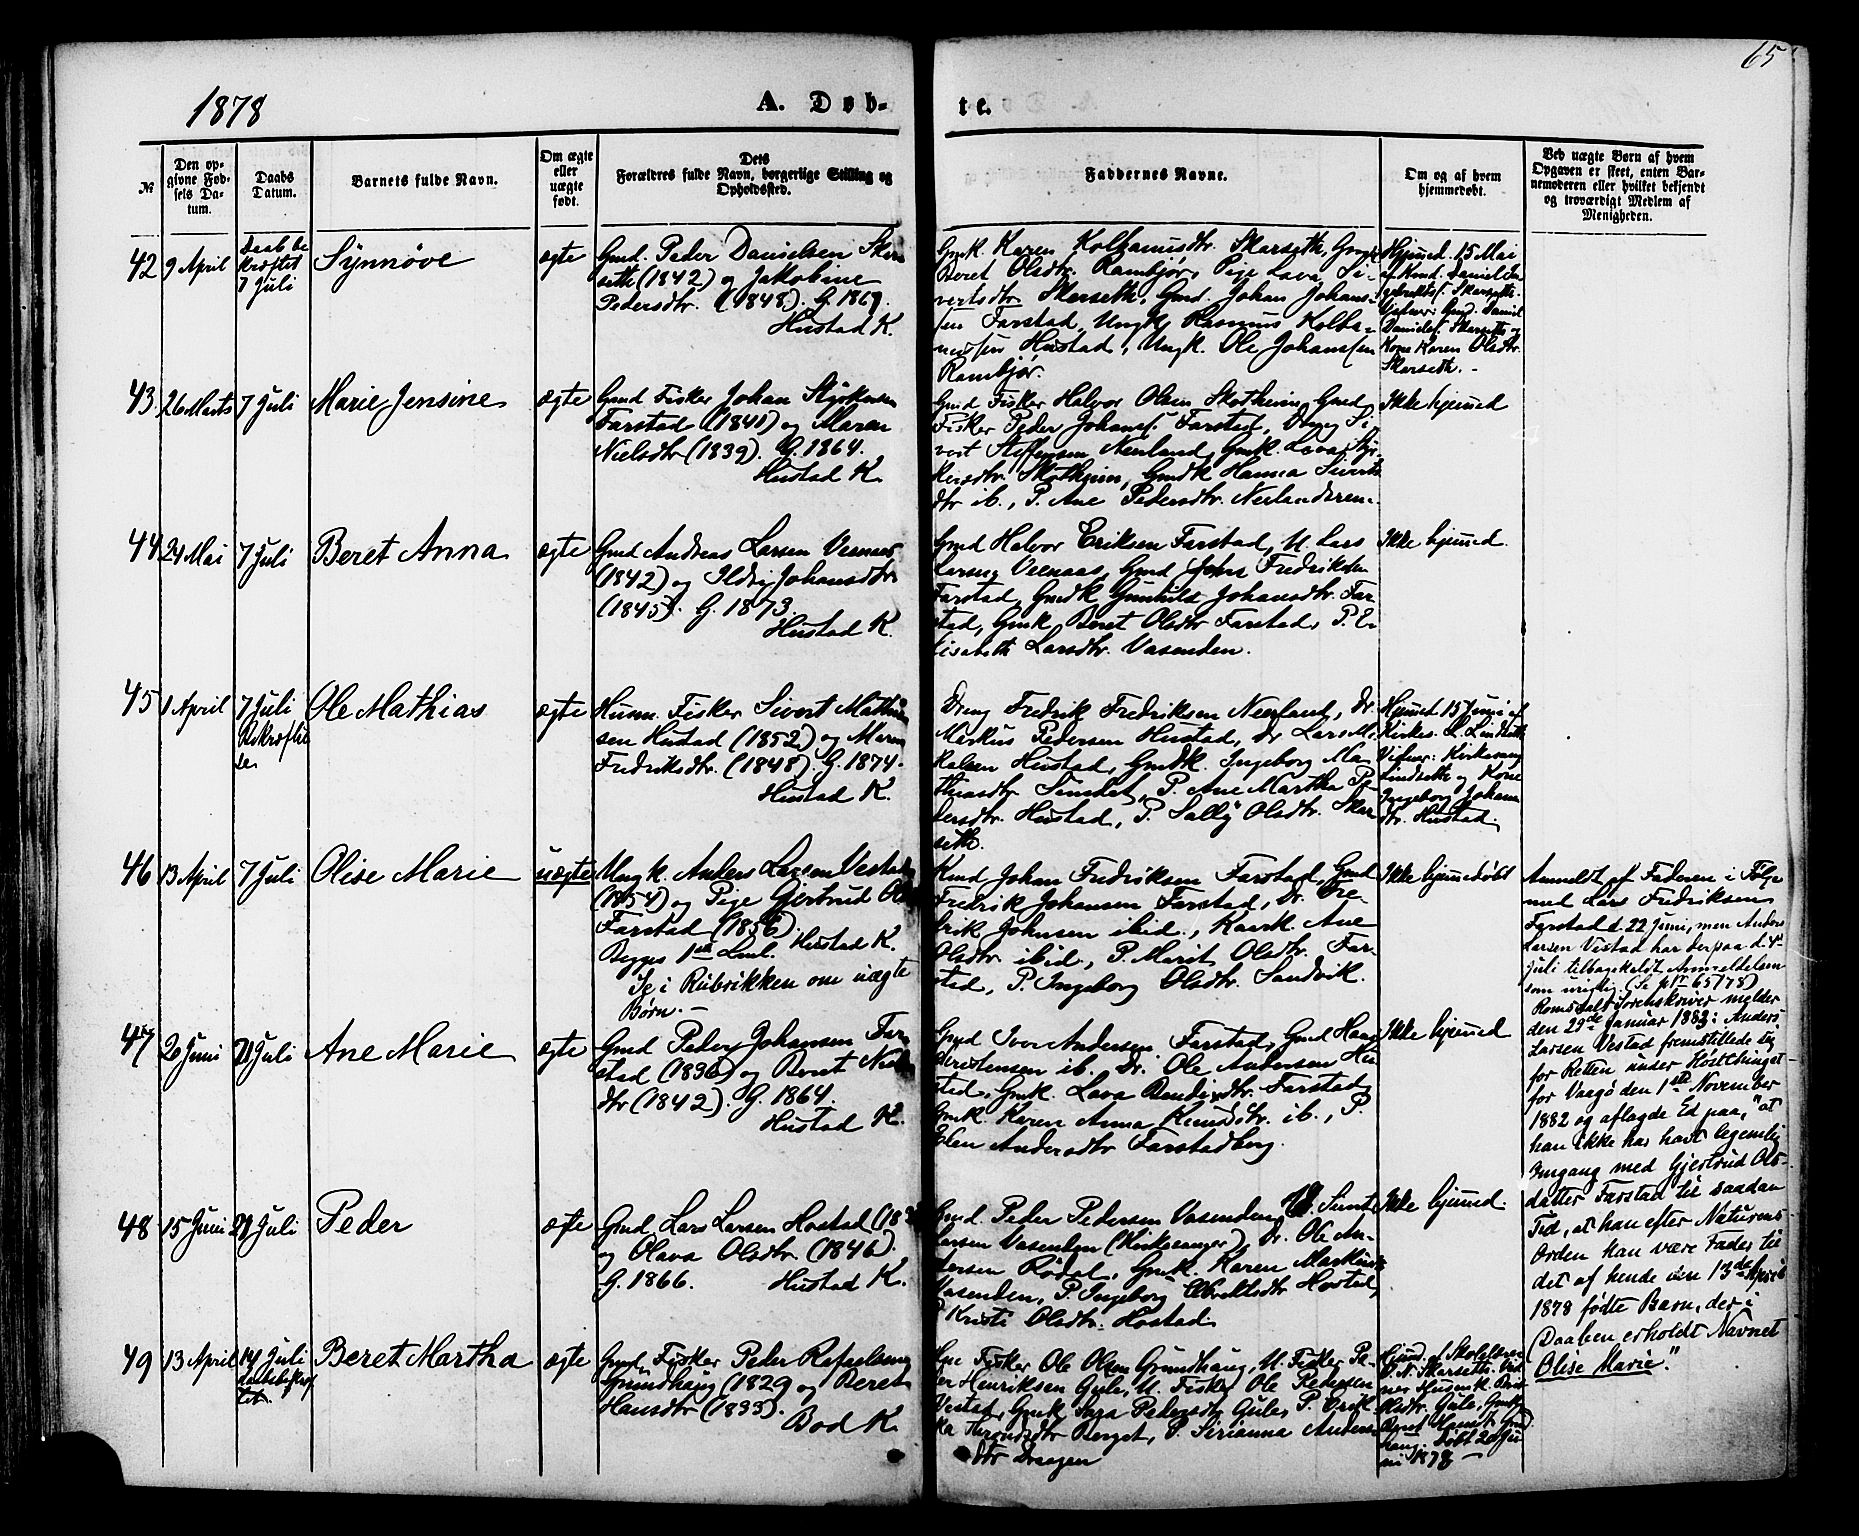 65
1878
A. Døb-
te.
№
Den op-
givne Fød-
sels Da-
tum.
Daabs
Datum.
Barnets fulde Navn.
Om ægte
eller
uægte
født.
Dets
Forældres fulde Navn, borgerlige Stilling og
Opholdssted.
Faddernes Navne.
Om og af hvem
hjemmedøbt.
Ved uægte Børn af hvem
Opgaven er skeet, enten Bar-
nemoderen eller hvilket bekjendt
og troværdigt Medlem af
Menigheden.
42
9 April
Daab be
kræftet
7 Juli
Synnøve
ægte
Gmd. Peder Danielsen Skar
seth (1842) og Jakobine
Pedersdtr. (1848). G. 1869.
Hustad K.
Gmk. Karen Kolbanusdtr. Skarseth, Gmk
Beret Olsdtr. Rambjør, Pige Lava Si-
vertsdtr Skarseth, Gmd. Johan Johans-
sen Farstad, Ungk. Rasmus Kolba-
nussen Hustad, Ungk. Ole Johanssen
Rambjør.
Hjemmed. 15 Mai
af Gmd. Daniel In
gebrektss. Skarseth.
Vidner: Gmd. Daniel
Daniels. Skarseth og
Kone Karen Olsdtr.
Skarseth.-
43
26 Marts
7 Juli
Marie Jensine
ægte
Gmd Fisker Johan Styrkersen
Farstad (1841) og Maren
Nielsdtr (1839). G. 1864.
Hustad K.
Gmd Fisker Halvor Olsen Skotheim, Gmd
Fisker Peder Johans. Farstad, Dreng Si
vert Steffensen Neerland, Gmk. Lava Styr
kersdtr. Skotheim, Gmdk Hanna Siverts
dtr ib., P. Ane Pedersdtr. Neerlandsrem.
Ikke hjemmed
44
24 Mai
7 Juli
Beret Anna
ægte
Gmd Andreas Larsen Veenaas
(1842) og Ildri Johansdtr
(1845). G. 1873.
Hustad K.
Gmd Halvor Eriksen Farstad, U. Lars
Larsen Veenaas, Gmd John Fredriksen
Farstad, Gmdk Gunhild Johansdtr. Far
stad, Gmk. Beret Olsdtr Farstad, P. E-
lisabeth Larsdtr. Vasenden.
Ikke hjemmed.
45
1 April
7 Juli
Bekræftel
se.
Ole Mathias
ægte
Husm. Fisker Sivert Mathia
sen Hustad (1852) og Maren
Fredriksdtr. (1848). G. 1874.
Hustad K.
Dreng Fredrik Fredriksen Neerland, Dr.
Markus Pedersen Hustad, Dr Lars Mi
kalsen Hustad, Gmdk. Ingeborg Ma
thiasdtr Sundet, P. Ane Martha Pe
dersdtr. Hustad, P. Sally Olsdtr. Skar
seth.
Hjemmed 15 Juni af
Kirkes. L. Lindseth
Vidner: Kirkesang
Lindseth og Kone
Ingeborg Johans
dtr. Hustad.
46
13 April
7 Juli
Olise Marie
uægte
Ungk. Anders Larsen Vestad
(1854) og Pige Gjertrud Ols
Farstad (1856).
Begges 1ste Lml. Hustad K.
Se i Rubrikken om uægte
Børn.-
Gmd Johan Fredriksen Farstad, Gmd
Fredrik Johansen Farstad, Dr. Fre-
drik Johnsen ibid., Kaark. Ane
Olsdtr. ibid., P. Marit Olsdtr. Far-
stad, P. Ingeborg Olsdtr. Sandvik.
Ikke hjemmedøbt
Anmeldt af Faderen i Følge
med Lars Fredriksen
Farstad d. 22 Juni, men Anders
Larsen Vestad har derpaa d. 4de
Juli tilbagekaldt Anmeldelsen
som urigtig. (Se 65/78)
Romsdals Sorenskriver melder
den 29de Januar 1883: Anders
Larsen Vestad fremstillede sig
for Retten under Høstthinget
for Vaagø den 1ste November
1882 og aflagde Ed paa, "at
han ikke har havt legemlig
Omgang med Gjertrud Ols-
datter Farstad til saadan
Tid, at han efter Naturens
Orden kan være Fader til
det af hende den 13de April
1878 fødte Barn, der i
Daaben erholdt Navnet
Olise Marie."
47
20 Juni
21 Juli
Ane Marie
ægte
Gmd Peder Johansen Far
stad (1836) og Beret Niels
dtr (1842). G. 1864.
Hustad K.
Gmd Iver Andersen Farstad, Gmd Haag
Christensen ib. Dr. Ole Andersen Hu
stad, Gmk. Lava Bendixdtr. Farstad,
Gmk. Karen Anna Knudsdtr. ib., P.
Elen Andersdtr Farstadberg.
Ikke hjemmed
48
15 Juni
21 Juli
Peder
ægte
Gmd. Lars Larsen Hostad (18
og Olava Olsdtr. (1846).
G. 1866. Hustad K.
Gmd. Peder Pedersen Vasenden, U. Sunt
Larsen Vasenden (Kirkesanger), Dr. Ole An-
dersen Rødal, Gmk. Karen Markus
Vasenden, P. Ingeborg Olsdtr Hostad,
P. Kristi Olsdtr. Hostad.
Ikke hjemmed.
49
13 April
14 Juli
Daabsbekræf
telse.
Beret Martha
ægte
Gmd. Fisker Peder Rafaelsen
Grundhaug (1829 og Beret
Hansdtr (1833).
Bod K.
Gmd Fisker Ole Olsen Grundhaug, U. Fisker Pe-
der Henriksen Gule, U. Fisker Ole Pedersen
Vestad, Gmk. Sara Pedersdtr Gule, P. Erik-
ka Throndsdtr Berget, P. Serianna Anders
dtr Dragen
Hjemd. af Skolelærer
P. N. Skarseth. Vid
ner Husmk. Beret
Olsdtr. Gule, Gmk
Beret Hansd. Grund
haug. Døbt 20 Ju
ni 1878.-